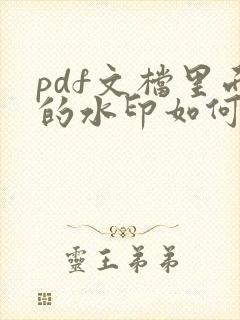 pdf文檔里面
的水印如何
靈王弟弟